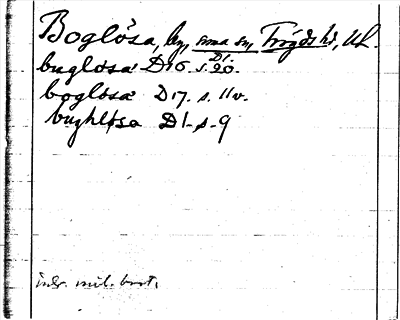 Boglösa, by, sma sn, Trögds hd, Ul.
buglosa D16. s. 20. D1.
boglosa D17. s. 11v.
bughløsa D1. s. 9